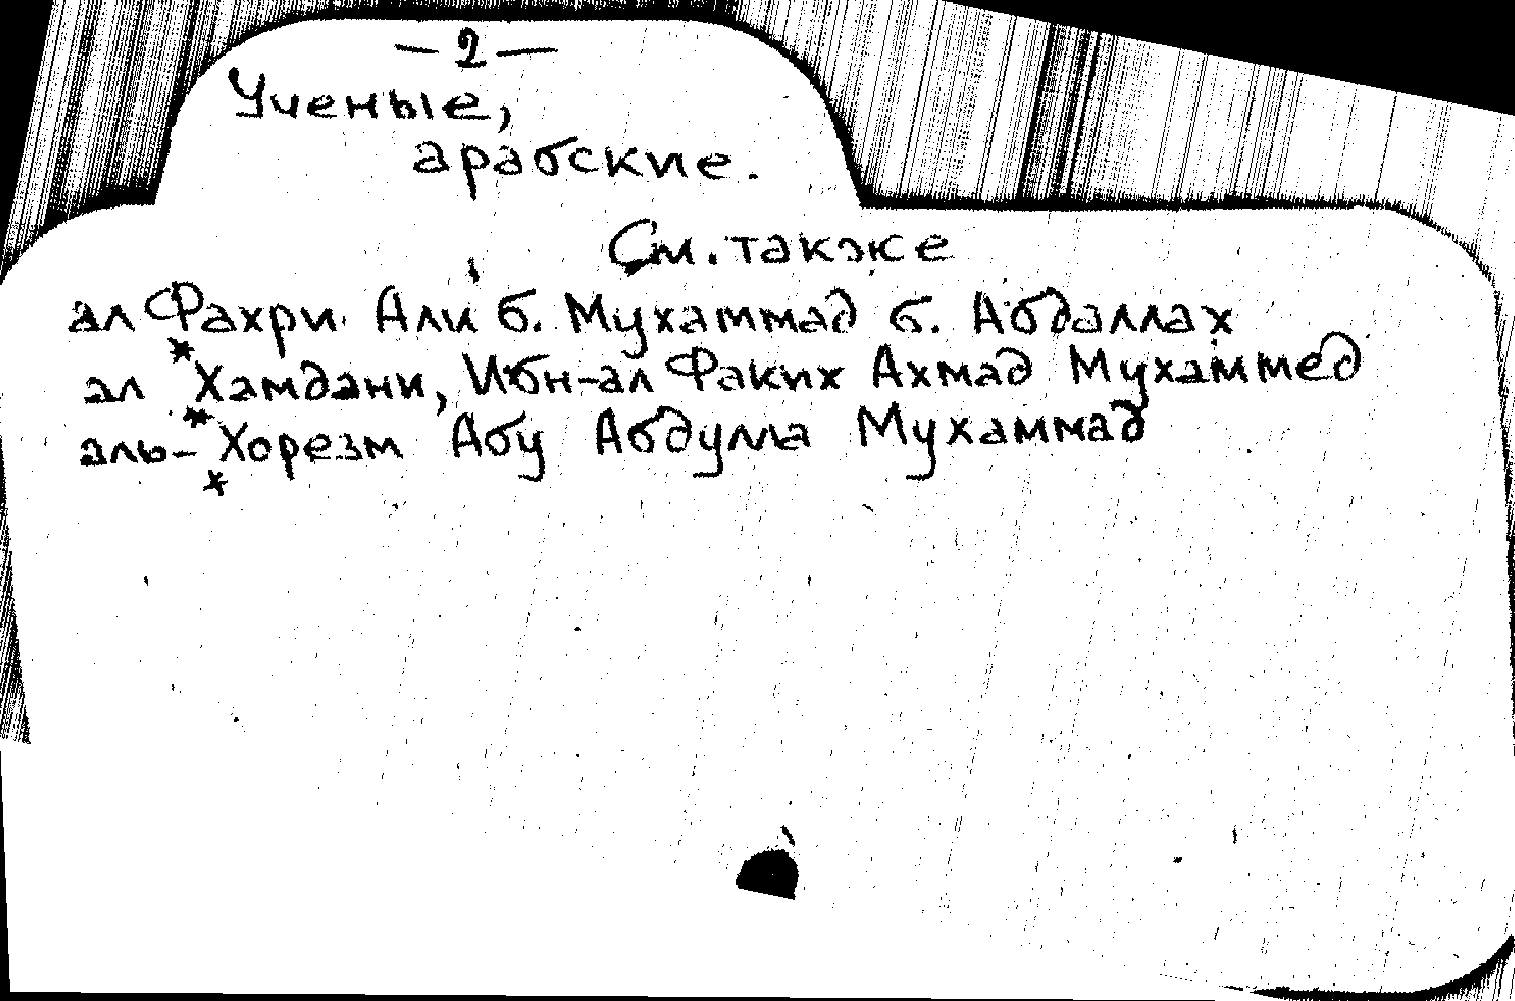 — 2 —
Ученые,
арабские.
См. также
ал Фахри Али б. Мухаммад б. Абдаллах
ал *Хамдани, Ибн-ал Факих Ахмад Мухаммед
аль-*Хорезм Абу Абдулла Мухаммад
*